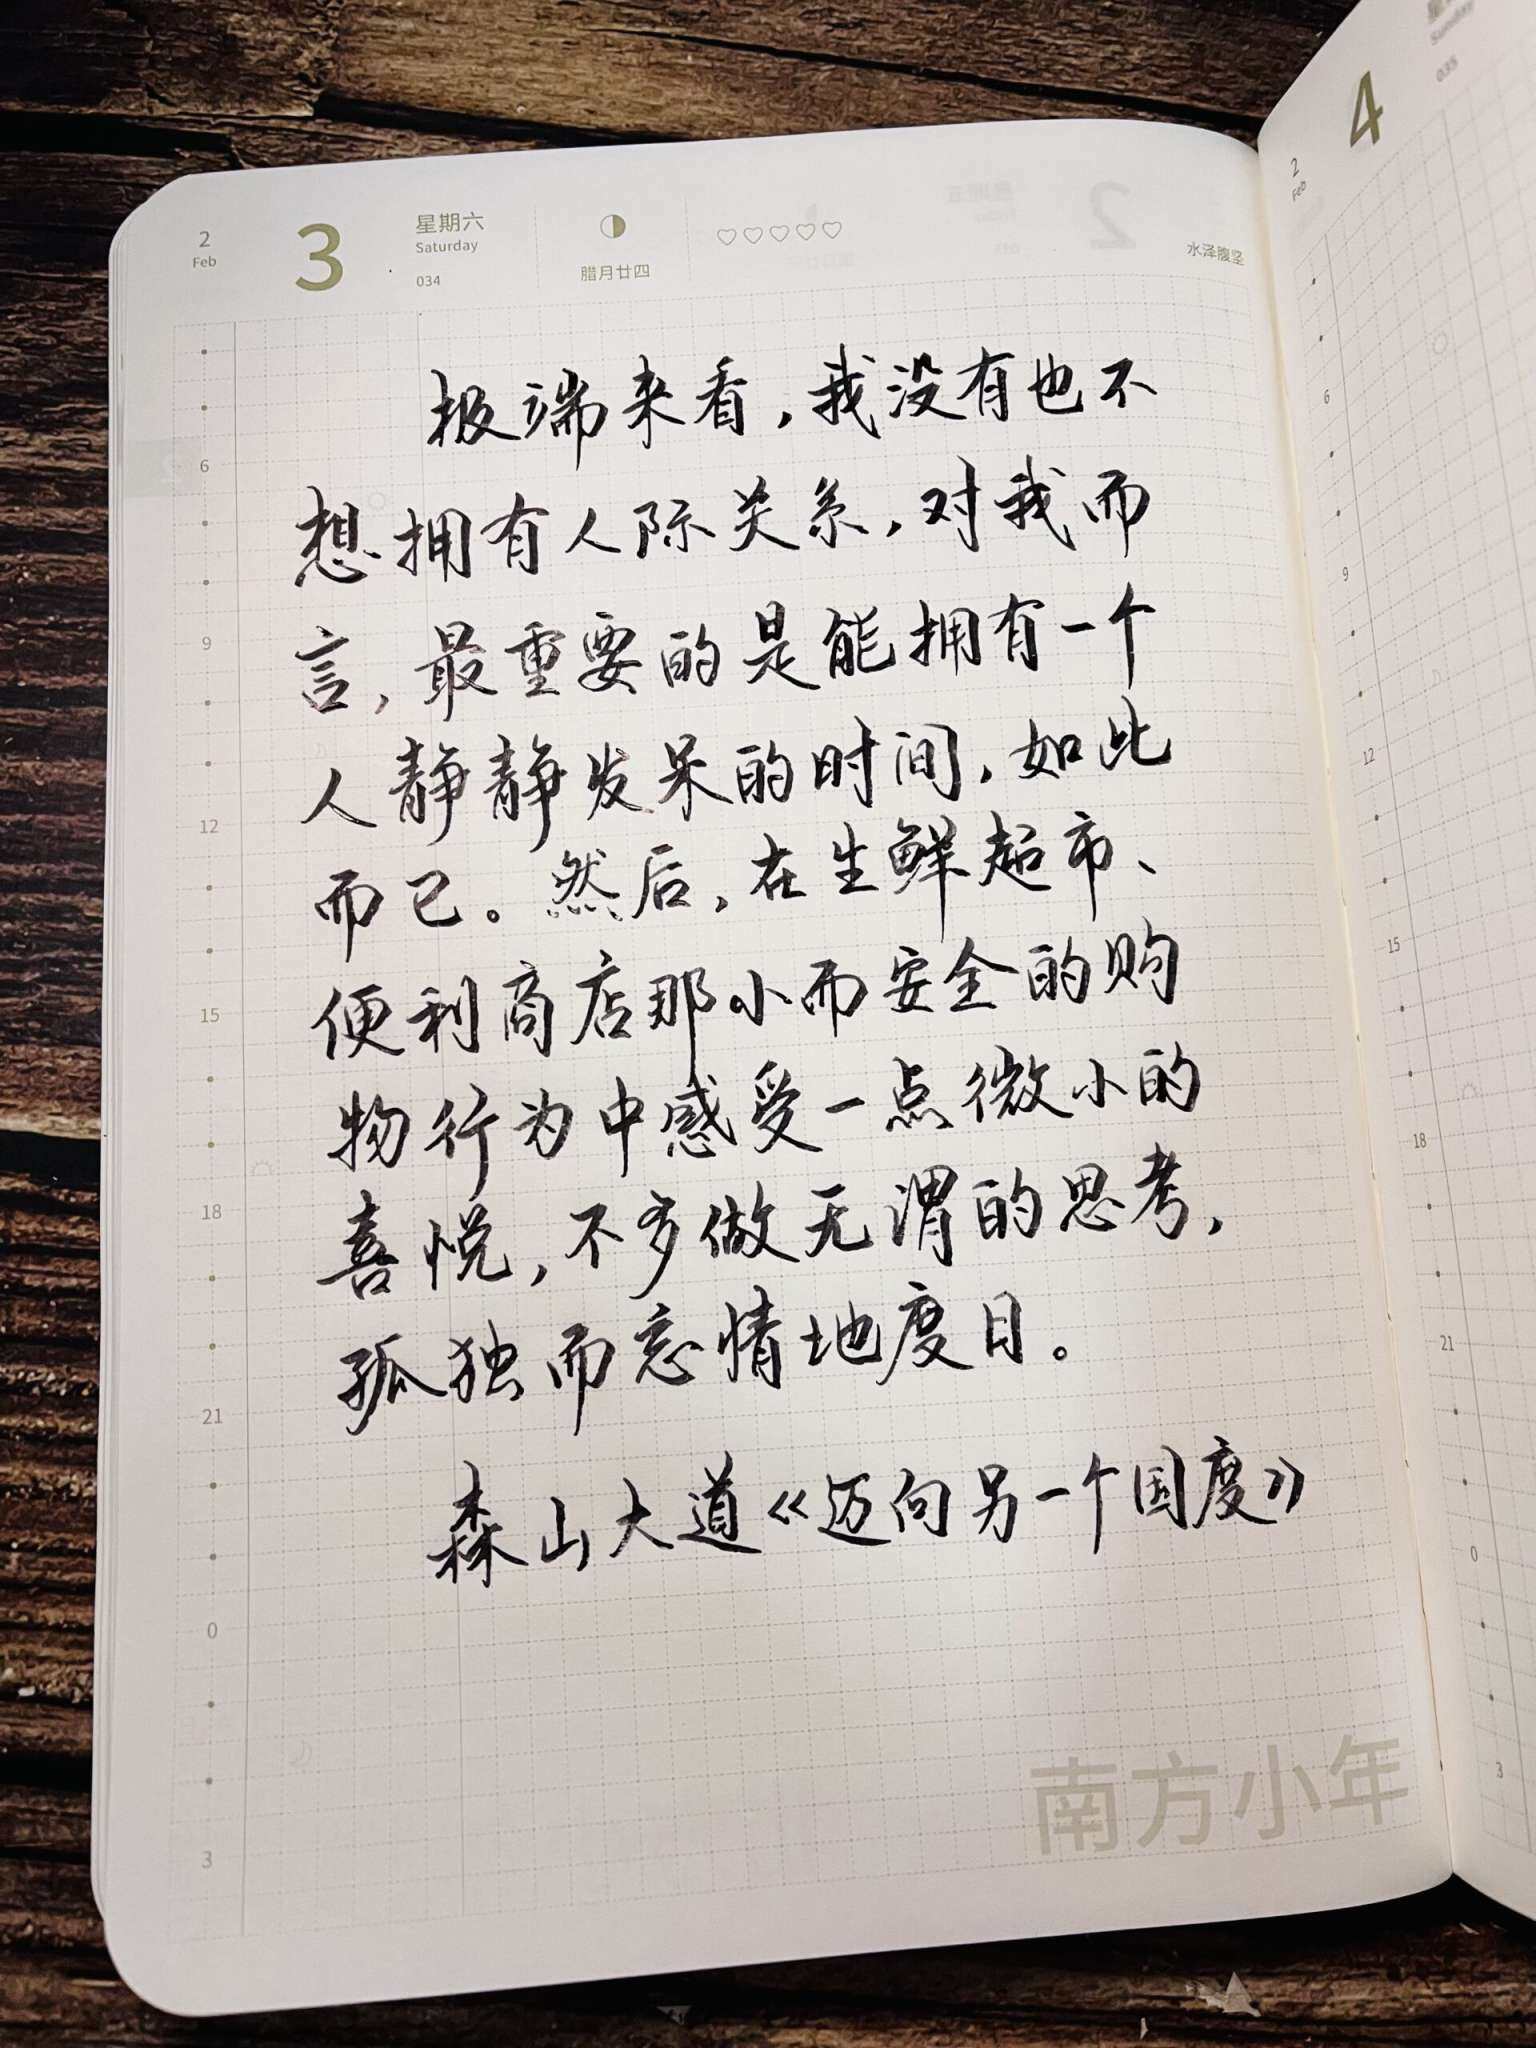 2
Feb
3
星期六
Saturday
034
腊月廿四
水泽腹坚
极端来看，我没有也不
想拥有人际关系，对我而
言，最重要的是能拥有一个
人静静发呆的时间，如此
而已。然后，在生鲜超市、
便利商店那小而安全的购
物行为中感受一点微小的
喜悦，不多做无谓的思考，
孤独而忘情地度日。
森山大道《迈向另一个国度》
6
9
12
15
18
21
0
3
南方小年
2
Feb
4
Sunday
035
6
9
12
15
18
21
0
3